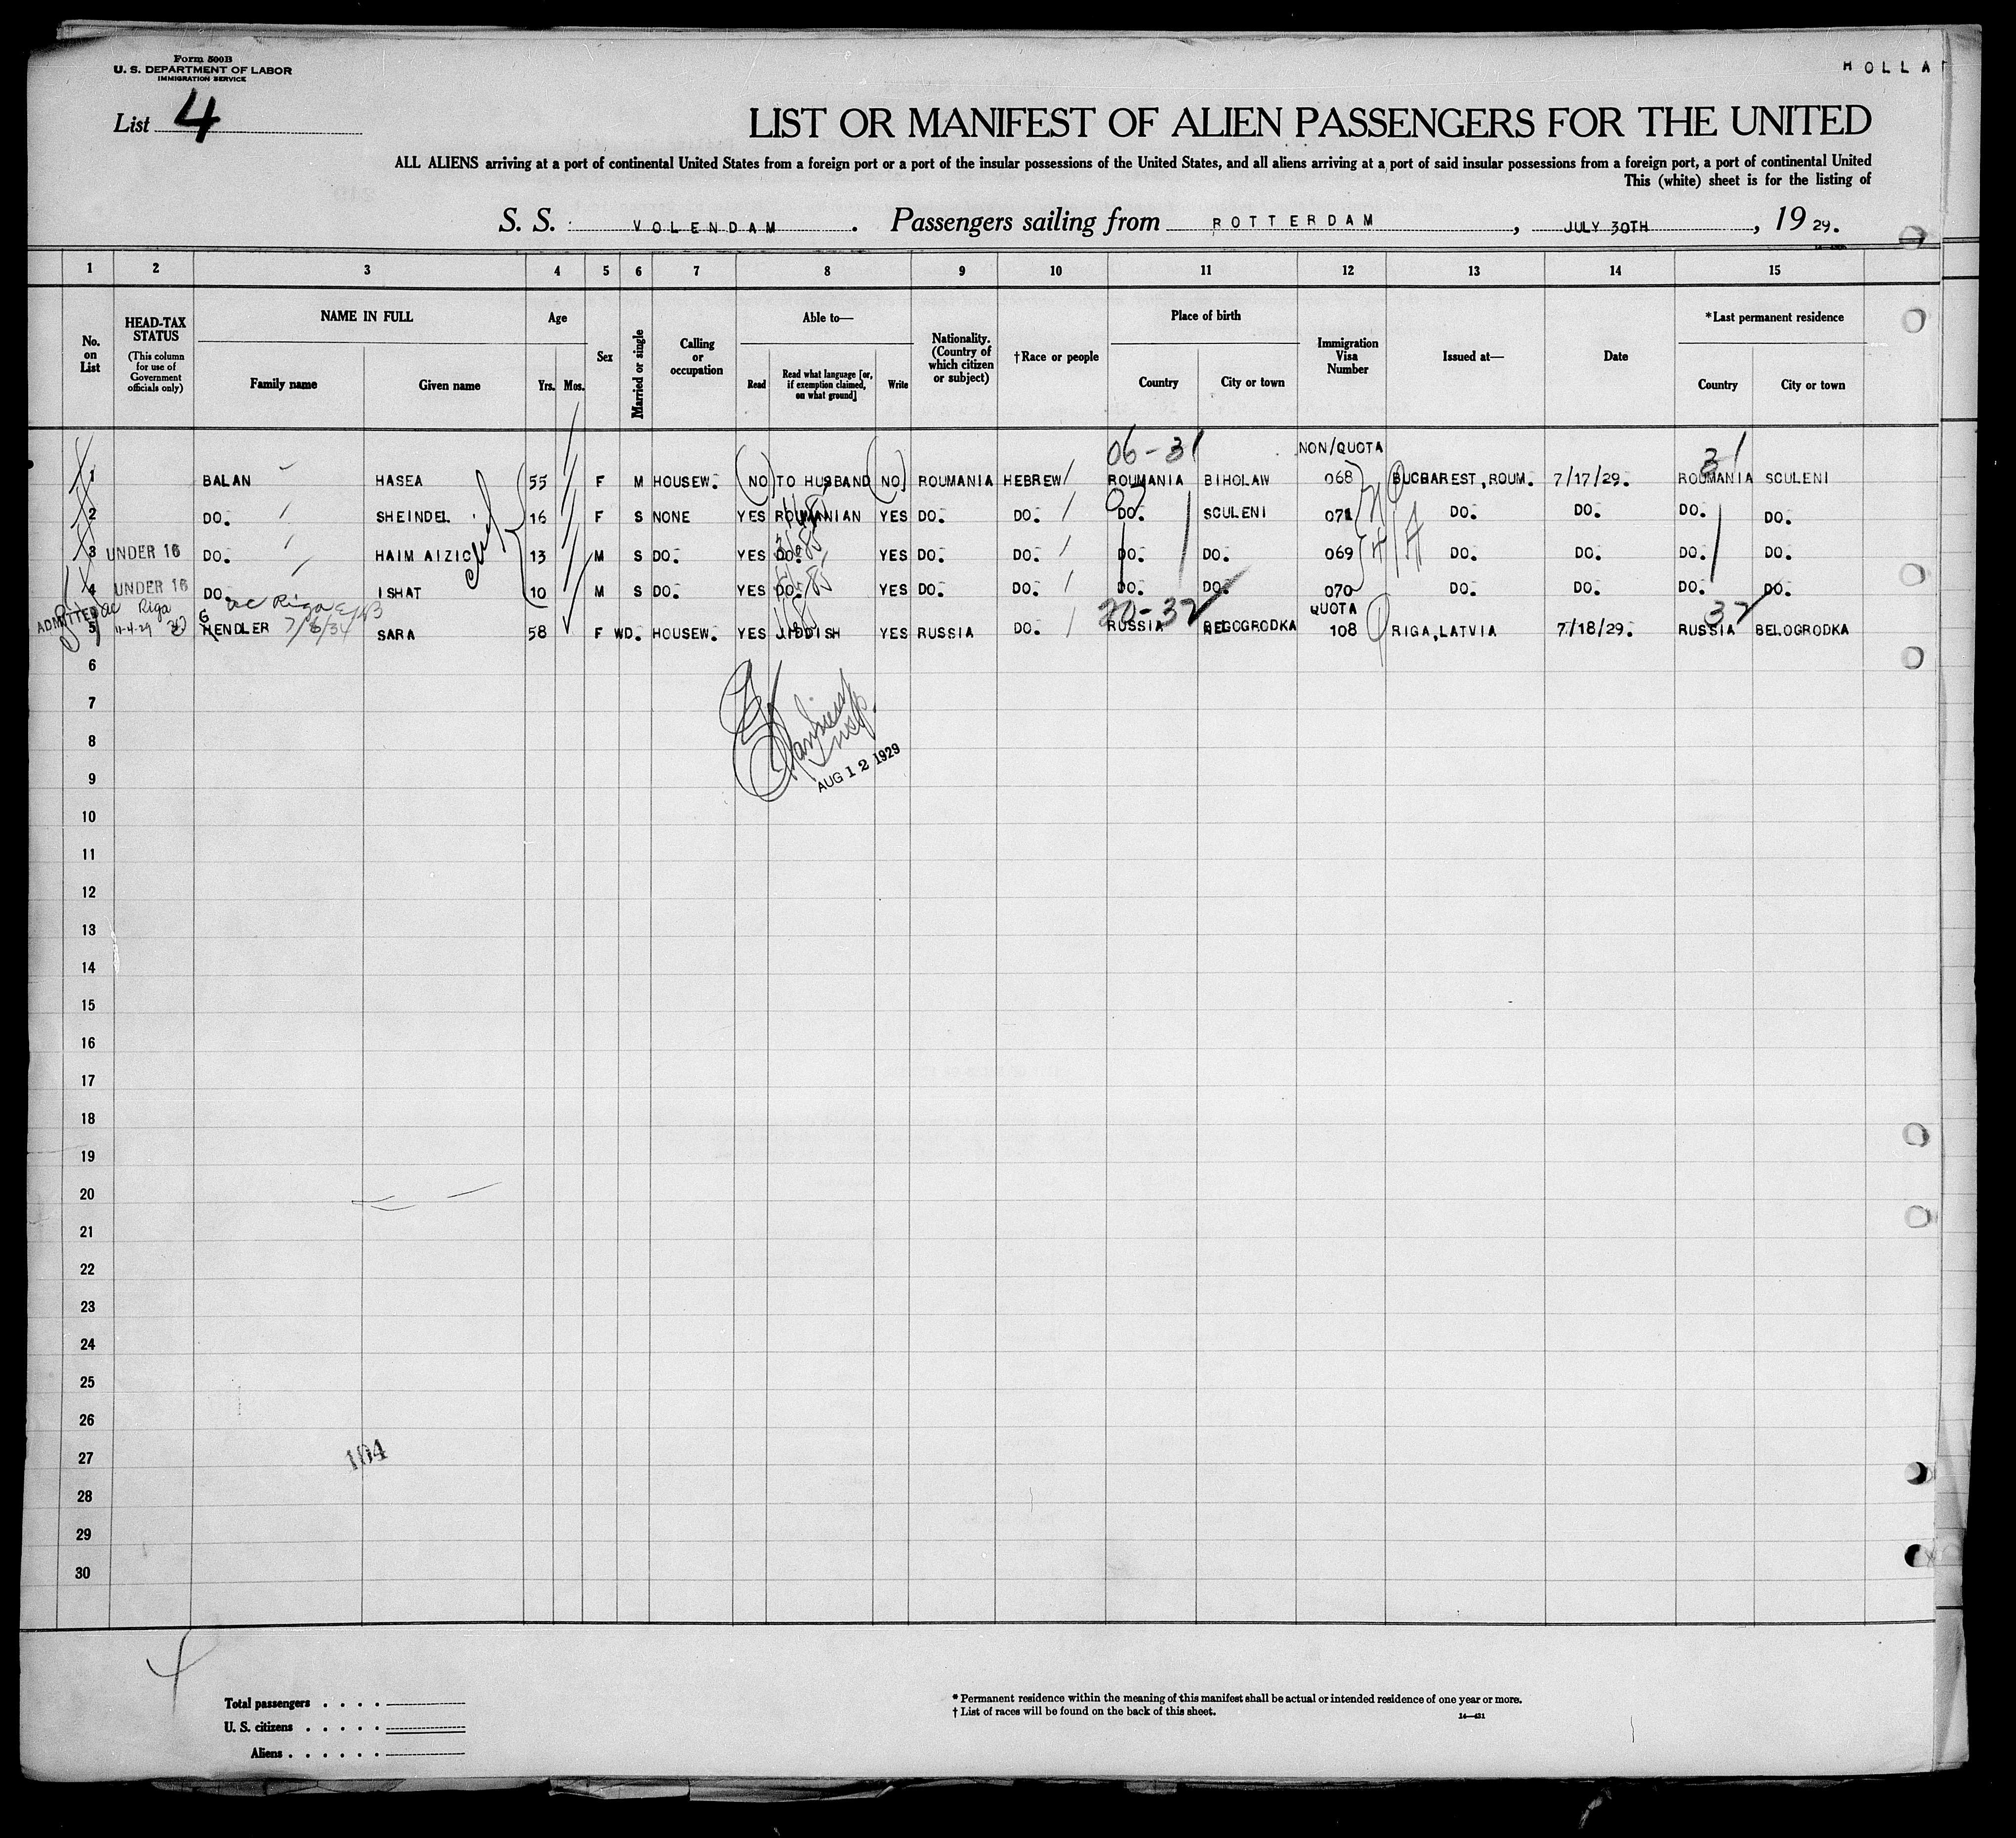 Form 500B
U. S. DEPARTMENT OF LABOR
IMMIGRATION SERVICE
HOLLA
List 4
LIST OR MANIFEST OF ALIEN PASSENGERS FOR THE UNITED
ALL ALIENS arriving at a port of continental United States from a foreign port or a port of the insular possessions of the United States, and all aliens arriving at a port of said insular possessions from a foreign port, a port of continental United
This (white) sheet is for the listing of
S. S. VOLENDAM. Passengers sailing from ROTTERDAM, JULY 30TH, 19 29.
1 2 3 4 5 6 7 8 9 10 11 12 13 14 15
No. on List
HEAD-TAX STATUS
(This column for use of Government officials only)
NAME IN FULL
Family name Given name
Age
Yrs. Mos.
Sex
Married or single
Calling or occupation
Able to—
Read
Read what language [or, if exemption claimed, on what ground]
Write
Nationality. (Country of which citizen or subject)
†Race or people
Place of birth
Country City or town
Immigration Visa Number
Issued at—
Date
*Last permanent residence
Country City or town
06-31 NON/QUOTA 31
1 BALAN HASEA 55 F M HOUSEW. (NO) TO HUSBAND (NO) ROUMANIA HEBREW ROUMANIA BIHOLAW 068 BUCHAREST, ROUM. 7/17/29. ROUMANIA SCULENI
2 DO. SHEINDEL 16 F S NONE YES ROUMANIAN YES DO. DO. DO. SCULENI 071 DO. DO. DO. DO.
3 UNDER 16 DO. HAIM AIZIC 13 M S DO. YES DO. YES DO. DO. DO. DO. 069 DO. DO. DO. DO.
4 UNDER 16 DO. ISHAT 10 M S DO. YES DO. YES DO. DO. DO. DO. 070 DO. DO. DO. DO.
ADMITTED Riga Riga 20-32 QUOTA 32
5 11-4-29 G HENDLER SARA 58 F WD. HOUSEW. YES JIDDISH YES RUSSIA DO. RUSSIA BELOGRODKA 108 RIGA, LATVIA 7/18/29. RUSSIA BELOGRODKA
6
7
8
AUG 12 1929
9
10
11
12
13
14
15
16
17
18
19
20
21
22
23
24
25
26
27
104
28
29
30
Total passengers . . . .
U. S. citizens . . . . .
Aliens . . . . . .
* Permanent residence within the meaning of this manifest shall be actual or intended residence of one year or more.
† List of races will be found on the back of this sheet.
14—431